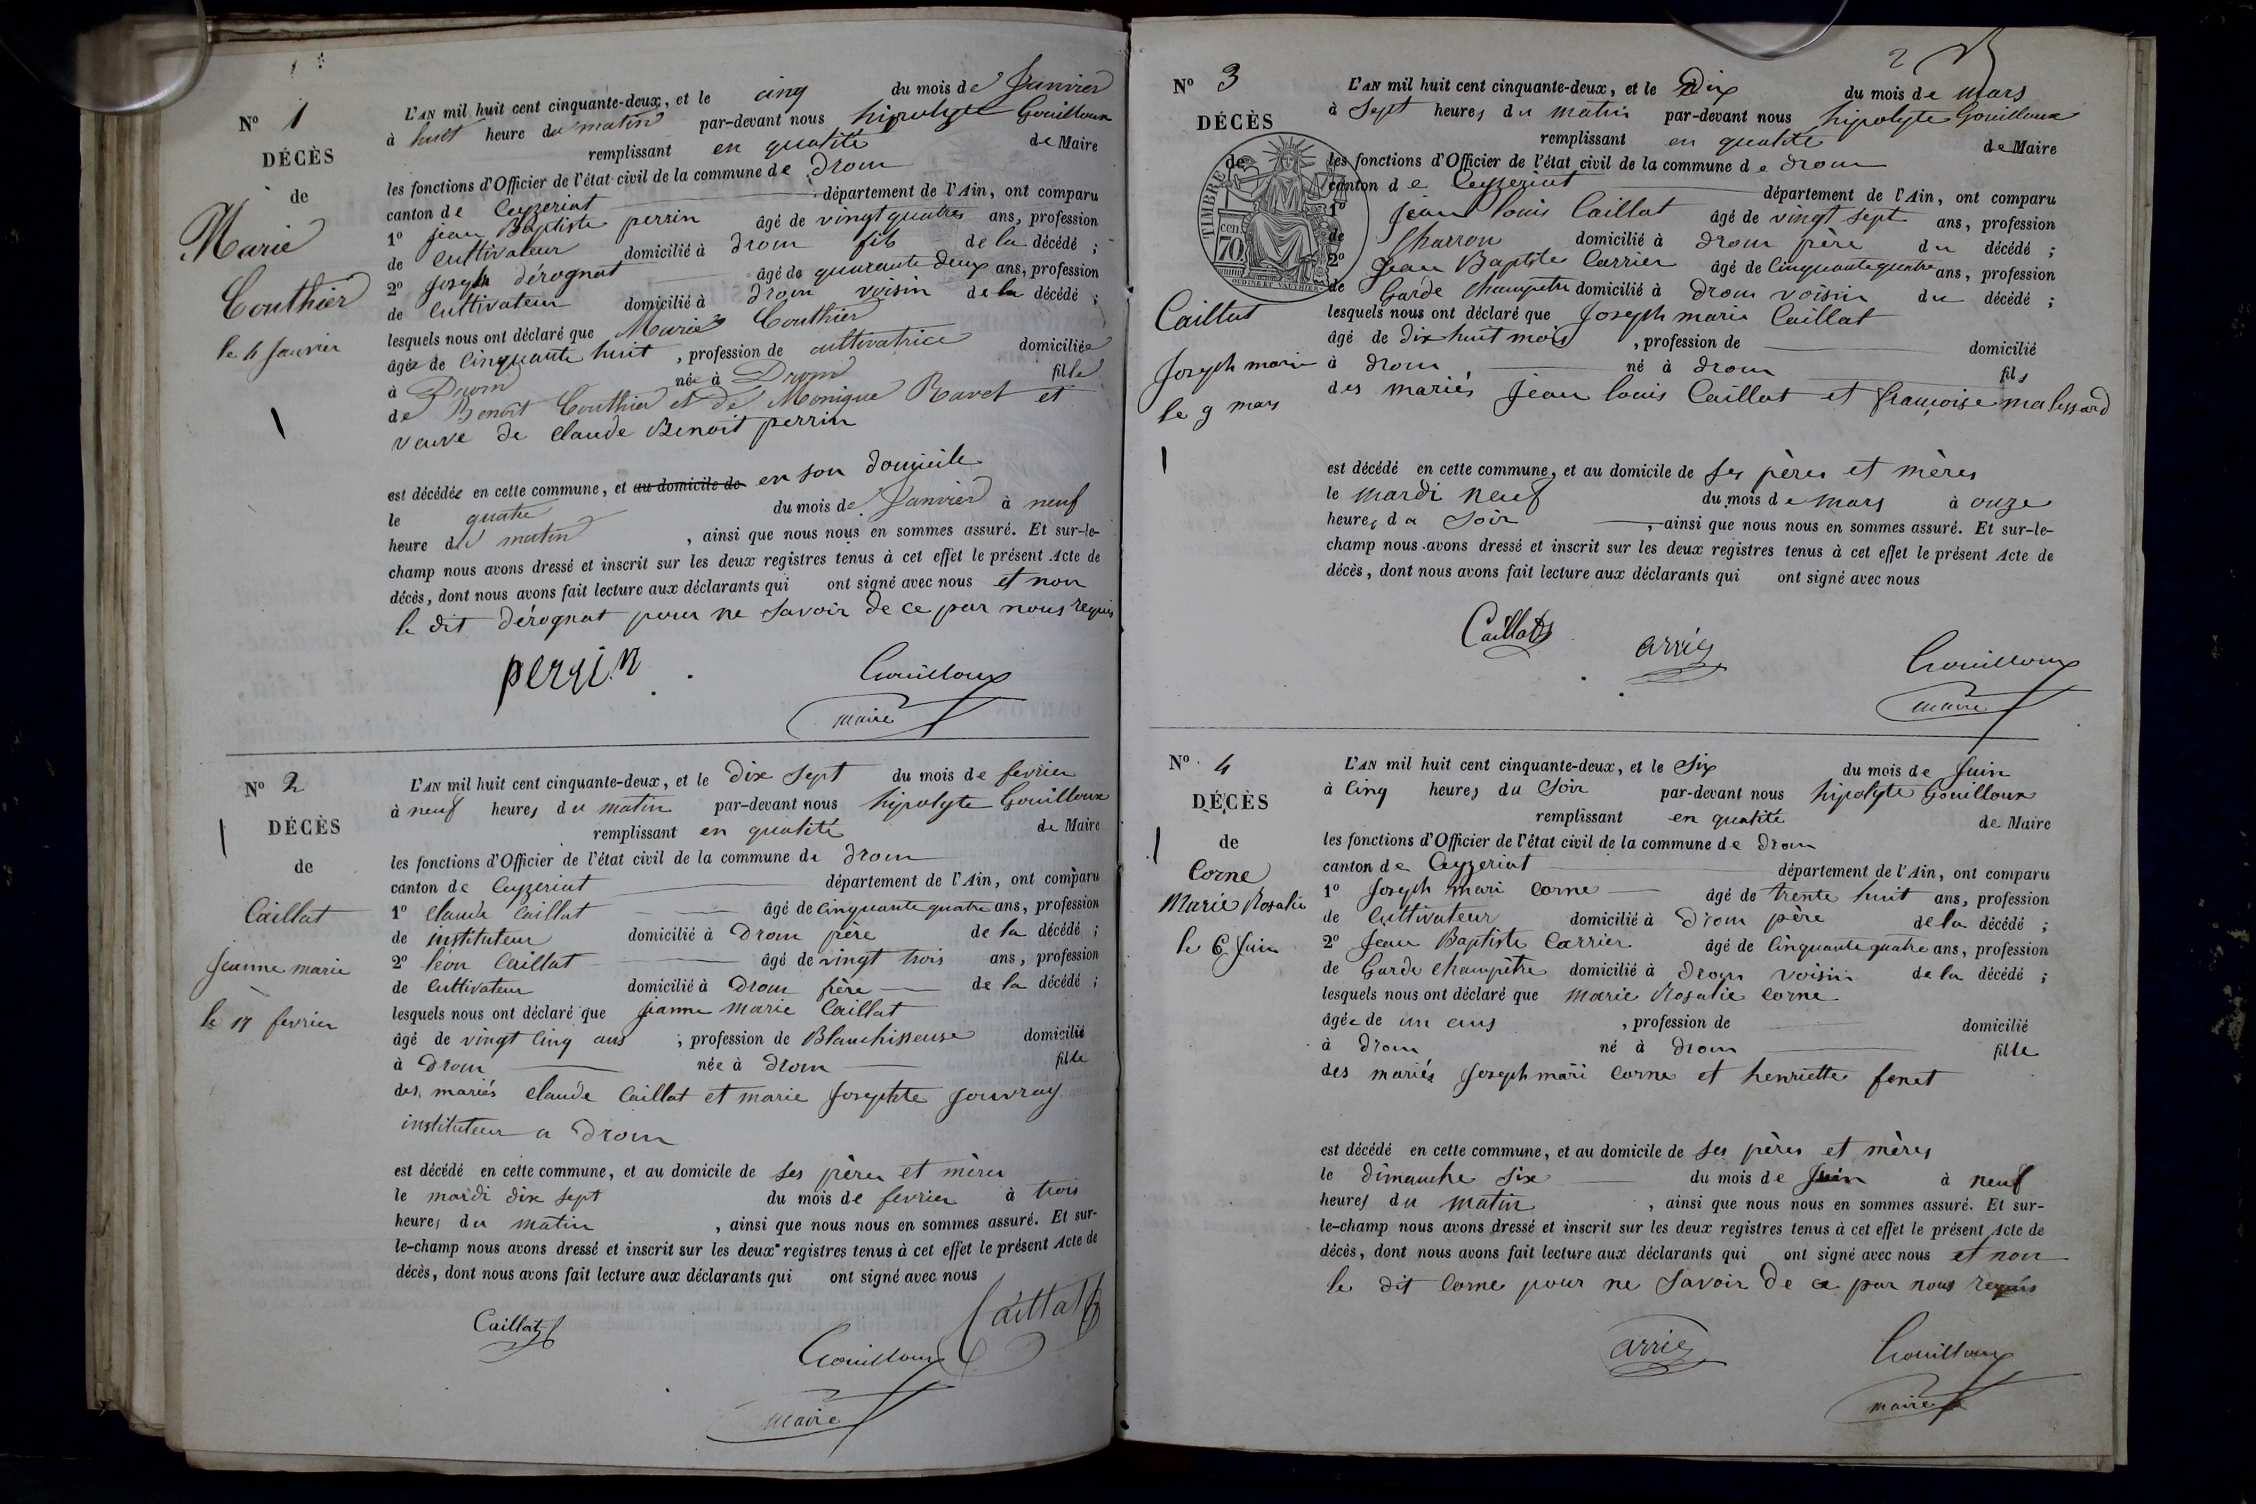 N° 1
DÉCÈS
de
Marie
Couthier
le 4 Janvier
L'AN mil huit cent cinquante-deux, et le cinq du mois de Janvier
à huit heure du matin par-devant nous hipolyte Gouilloux
remplissant en qualité de Maire
les fonctions d'Officier de l'état civil de la commune de Drom
canton de Ceyzeriat département de l'Ain, ont comparu
1° jean Baptiste perrin âgé de vingt quatres ans, profession
de cultivateur domicilié à Drom fils de la décédé ;
2° Joseph dérognat âgé de quarante deux ans, profession
de cultivateur domicilié à Drom voisin de la décédé ;
lesquels nous ont déclaré que Marie Couthier
âgée de Cinquante huit , profession de cultivatrice domiciliée
à Drom née à Drom fille
de Benoit Couthier et de Monique Ravet et
veuve de claude Benoit perrin
est décédée en cette commune, et au domicile de en son Domicile
le quatre du mois de Janvier à neuf
heure du matin , ainsi que nous nous en sommes assuré. Et sur-le-
champ nous avons dressé et inscrit sur les deux registres tenus à cet effet le présent Acte de
décès, dont nous avons fait lecture aux déclarants qui ont signé avec nous et non
le dit dérognat pour ne Savoir de ce par nous requis
perrin
Gouilloux
maire
N° 2
DÉCÈS
de
Caillat
Jeanne marie
le 17 fevrier
L'AN mil huit cent cinquante-deux, et le Dix Sept du mois de fevrier
à neuf heures du matin par-devant nous hipolyte Gouilloux
remplissant en qualité de Maire
les fonctions d'Officier de l'état civil de la commune de Drom
canton de Ceyzeriat département de l'Ain, ont comparu
1° claude Caillat âgé de cinquante quatre ans, profession
de instituteur domicilié à Drom père de la décédé ;
2° léon Caillat âgé de vingt trois ans, profession
de Cultivateur domicilié à Drom frère de la décédé ;
lesquels nous ont déclaré que jeanne marie Caillat
âgé de vingt Cinq ans ; profession de Blanchisseuse domicilié
à Drom née à Drom fille
des mariés claude Caillat et marie Josephte Jouvray
instituteur a Drom
est décédé en cette commune, et au domicile de Ses pères et mères
le mardi dix Sept du mois de fevrier à trois
heures du matin , ainsi que nous nous en sommes assuré. Et sur-
le-champ nous avons dressé et inscrit sur les deux registres tenus à cet effet le présent Acte de
décès, dont nous avons fait lecture aux déclarants qui ont signé avec nous
Caillat
Caillat
Gouilloux
maire
2
N° 3
DÉCÈS
de
TIMBRE
70
cen
Caillat
Joseph marie
le 9 mars
L'AN mil huit cent cinquante-deux, et le Dix du mois de mars
à Sept heures du matin par-devant nous hipolyte Gouilloux
remplissant en qualité de Maire
les fonctions d'Officier de l'état civil de la commune de Drom
canton de Ceyzeriat département de l'Ain, ont comparu
1° Jean louis Caillat âgé de vingt Sept ans, profession
de Charron domicilié à Drom père du décédé ;
2° Jean Baptste Carrier âgé de Cinquante quatre ans, profession
de Garde Champetre domicilié à Drom voisin du décédé ;
lesquels nous ont déclaré que Joseph marie Caillat
âgé de Dix huit mois , profession de domicilié
à Drom né à Drom fils
des mariés Jean louis Caillat et françoise malessard
est décédé en cette commune, et au domicile de Ses pères et mères
le mardi neuf du mois de mars à onze
heures du Soir , ainsi que nous nous en sommes assuré. Et sur-le-
champ nous avons dressé et inscrit sur les deux registres tenus à cet effet le présent Acte de
décès, dont nous avons fait lecture aux déclarants qui ont signé avec nous
Caillat
Gouilloux
maire
N° 4
DÉCÈS
de
Corne
Marie Rosalie
le 6 Juin
L'AN mil huit cent cinquante-deux, et le Six du mois de Juin
à Cinq heures du Soir par-devant nous hipolyte Gouilloux
remplissant en qualité de Maire
les fonctions d'Officier de l'état civil de la commune de Drom
canton de Ceyzeriat département de l'Ain, ont comparu
1° Joseph mari Corne âgé de trente huit ans, profession
de Cultivateur domicilié à Drom père de la décédé ;
2° Jean Baptiste Carrier âgé de Cinquante quatre ans, profession
de Garde champêtre domicilié à Drom voisin de la décédé ;
lesquels nous ont déclaré que marie Rosalie Corne
âgée de un ans , profession de domicilié
à Drom né à Drom fille
des mariés Joseph mari Corne et henriette fenet
est décédé en cette commune, et au domicile de Ses pères et mères
le dimanche Six du mois de Juin à neuf
heures du matin , ainsi que nous nous en sommes assuré. Et sur-
le-champ nous avons dressé et inscrit sur les deux registres tenus à cet effet le présent Acte de
décès, dont nous avons fait lecture aux déclarants qui ont signé avec nous et non
le dit Corne pour ne Savoir de ce par nous requis
Gouilloux
maire